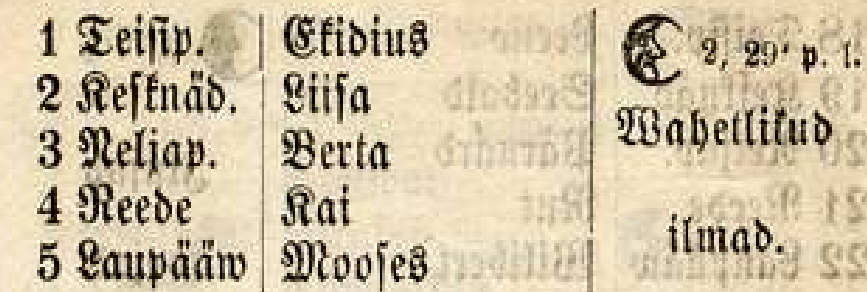 1 Teisip. Ekidius 2, 29' p. l.
2 Kesknäd. Liisa
Wahetlikud
3 Neljap. Berta
4 Reede Kai
ilmad.
5 Laupääw Mooses